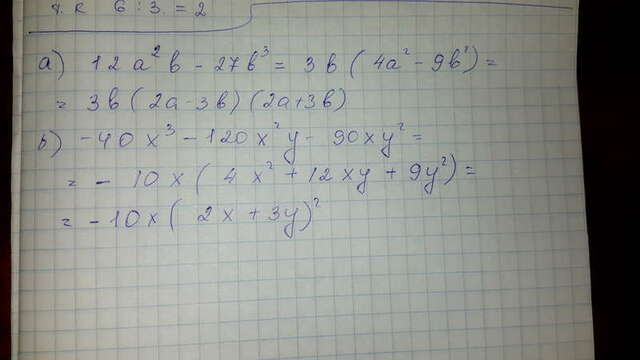 т.к 6 : 3. = 2
а) 12a²b - 27b³ = 3b (4a² - 9b²) =
= 3b (2a - 3b) (2a+3b)
b) -40x³ - 120x²y - 90xy² =
= - 10x (4x² + 12xy + 9y²) =
= -10x (2x + 3y)²